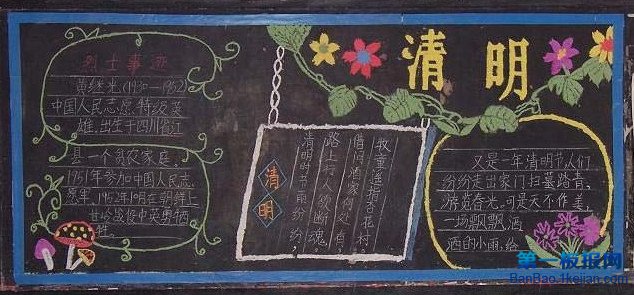 烈士事迹
黄继光(1930—1952)
中国人民志愿,特级英
雄,出生于四川省江
县一个贫农家庭,
1951年参加中国人民志
愿军,1952年在朝鲜上
甘岭战役中英勇牺
牲。
清明
清明
清明时节雨纷纷,
路上行人欲断魂。
借问酒家何处有
牧童遥指杏花村。
又是一年清明节,人们
纷纷走出家门扫墓踏青,
游览春光。可是天不作美,
一场飘飘洒
洒的小雨,给
第一板报网
BanBao.1kejian.com